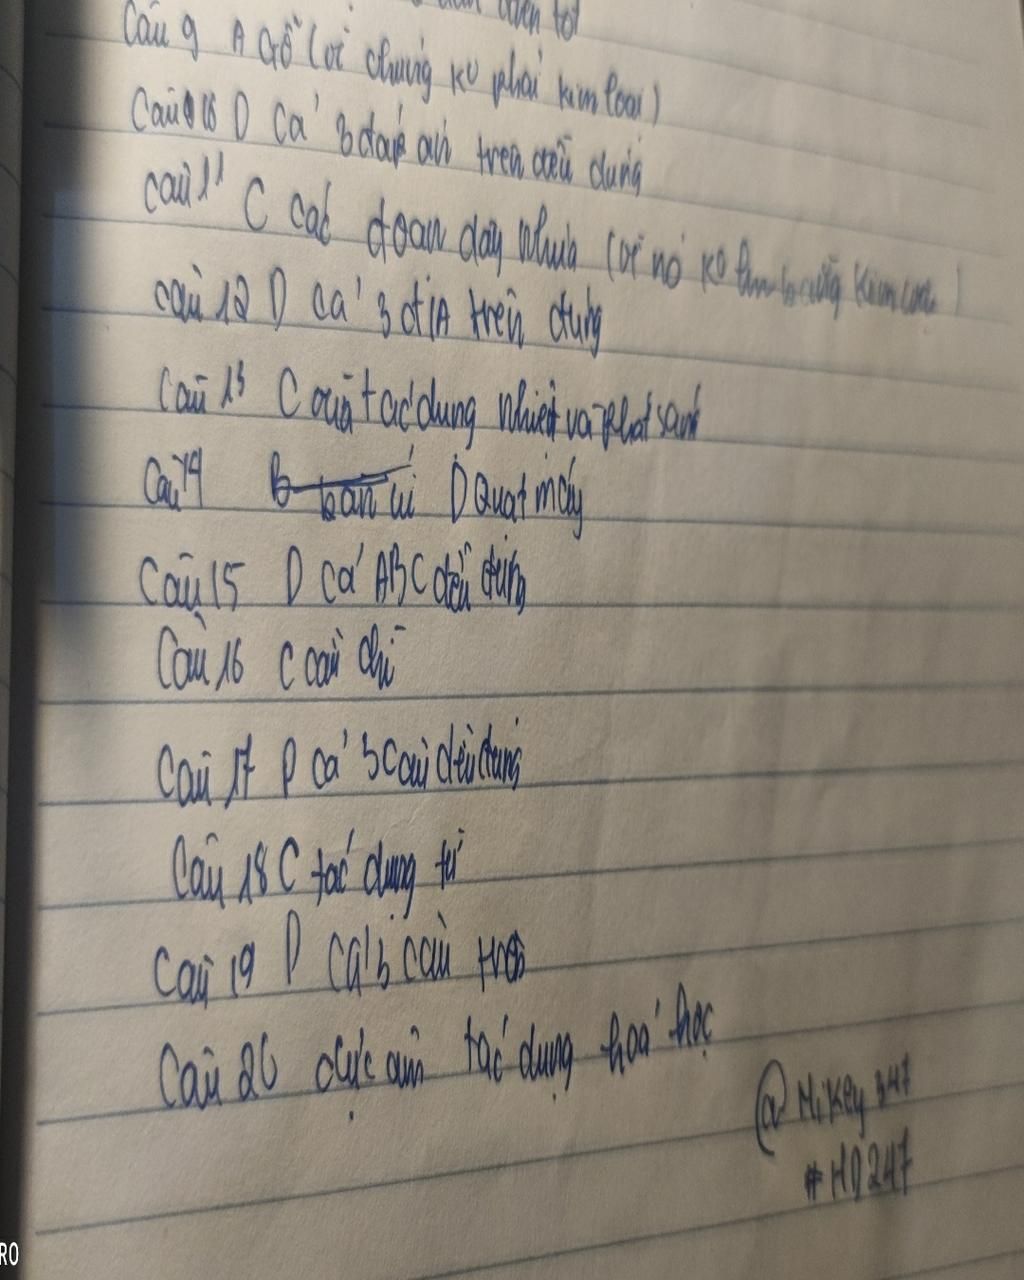 điện tốt
Câu 9 A Gỗ (vì chúng ko phải kim loại)
Câu 10 D Cả 3 đáp án trên đều đúng
Câu 11 C các đoạn dây nhựa (vì nó ko làm bằng kim loại)
Câu 12 D cả 3 đ/A trên đúng
Câu 13 C vừa tác dụng nhiệt và phát sáng
Câu 14 D Quạt máy
Câu 15 D Cả ABC đều đúng
Câu 16 C cầu chì
Câu 17 D cả 3 câu đều đúng
Câu 18 C tác dụng từ
Câu 19 D Cả 3 câu trên
Câu 20 cực âm tác dụng hoá học
@Mikey 347
#HD247
RO